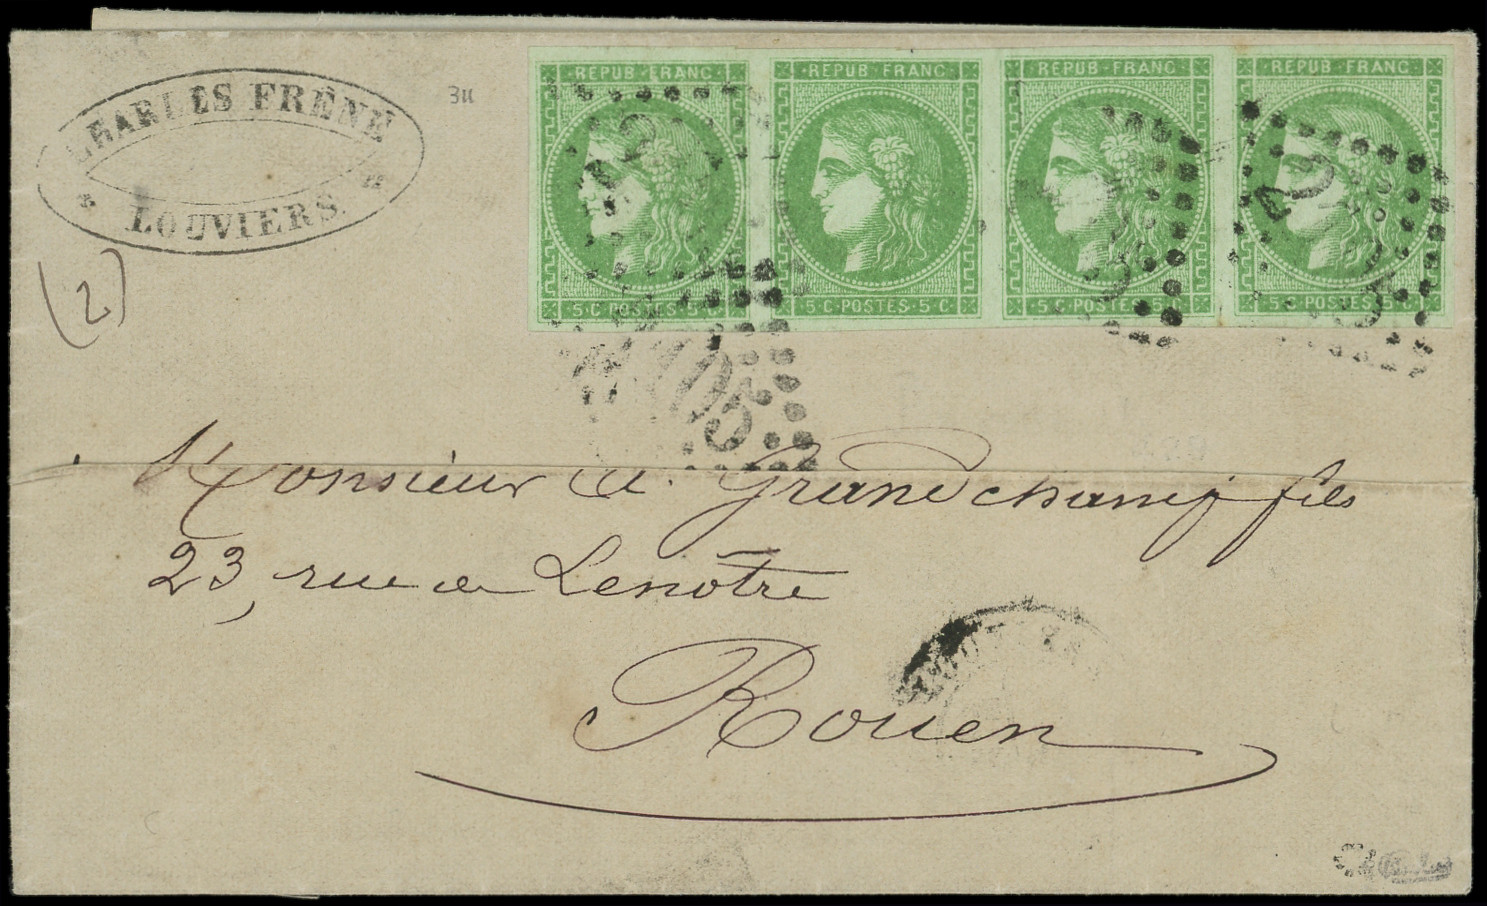 CHARLES FRÊNE
LOUVIERS
3u
(2)
REPUB FRANC
5·C·POSTES·5·C
REPUB FRANC
5·C·POSTES·5·C
REPUB FRANC
5·C·POSTES·5·C
REPUB FRANC
5·C·POSTES·5·C
2105
Monsieur A. Grandchamp fils
23, rue de Lenôtre
Rouen